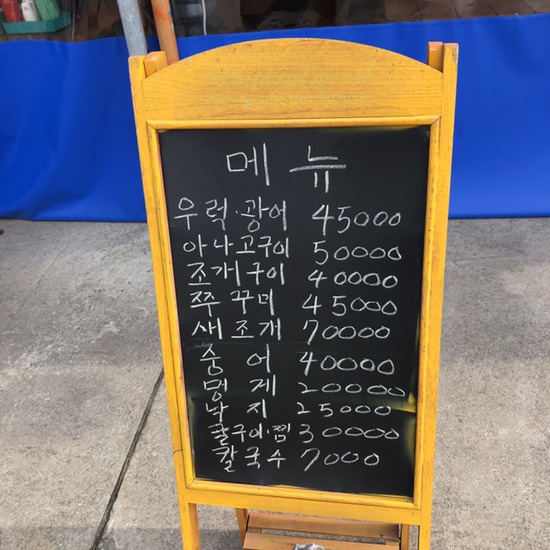 메뉴
우럭·광어 45000
아나고구이 50000
조개구이 40000
쭈꾸미 45000
새조개 70000
숭어 40000
멍게 20000
낙지 25000
굴구이·찜 30000
칼국수 7000